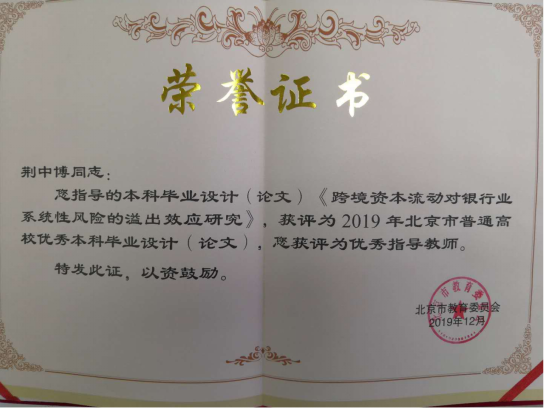 荣誉证书
荆中博同志：
您指导的本科毕业设计（论文）《跨境资本流动对银行业
系统性风险的溢出效应研究》，获评为2019年北京市普通高
校优秀本科毕业设计（论文），您获评为优秀指导教师。
特发此证，以资鼓励。
北京市教育委员会
2019年12月